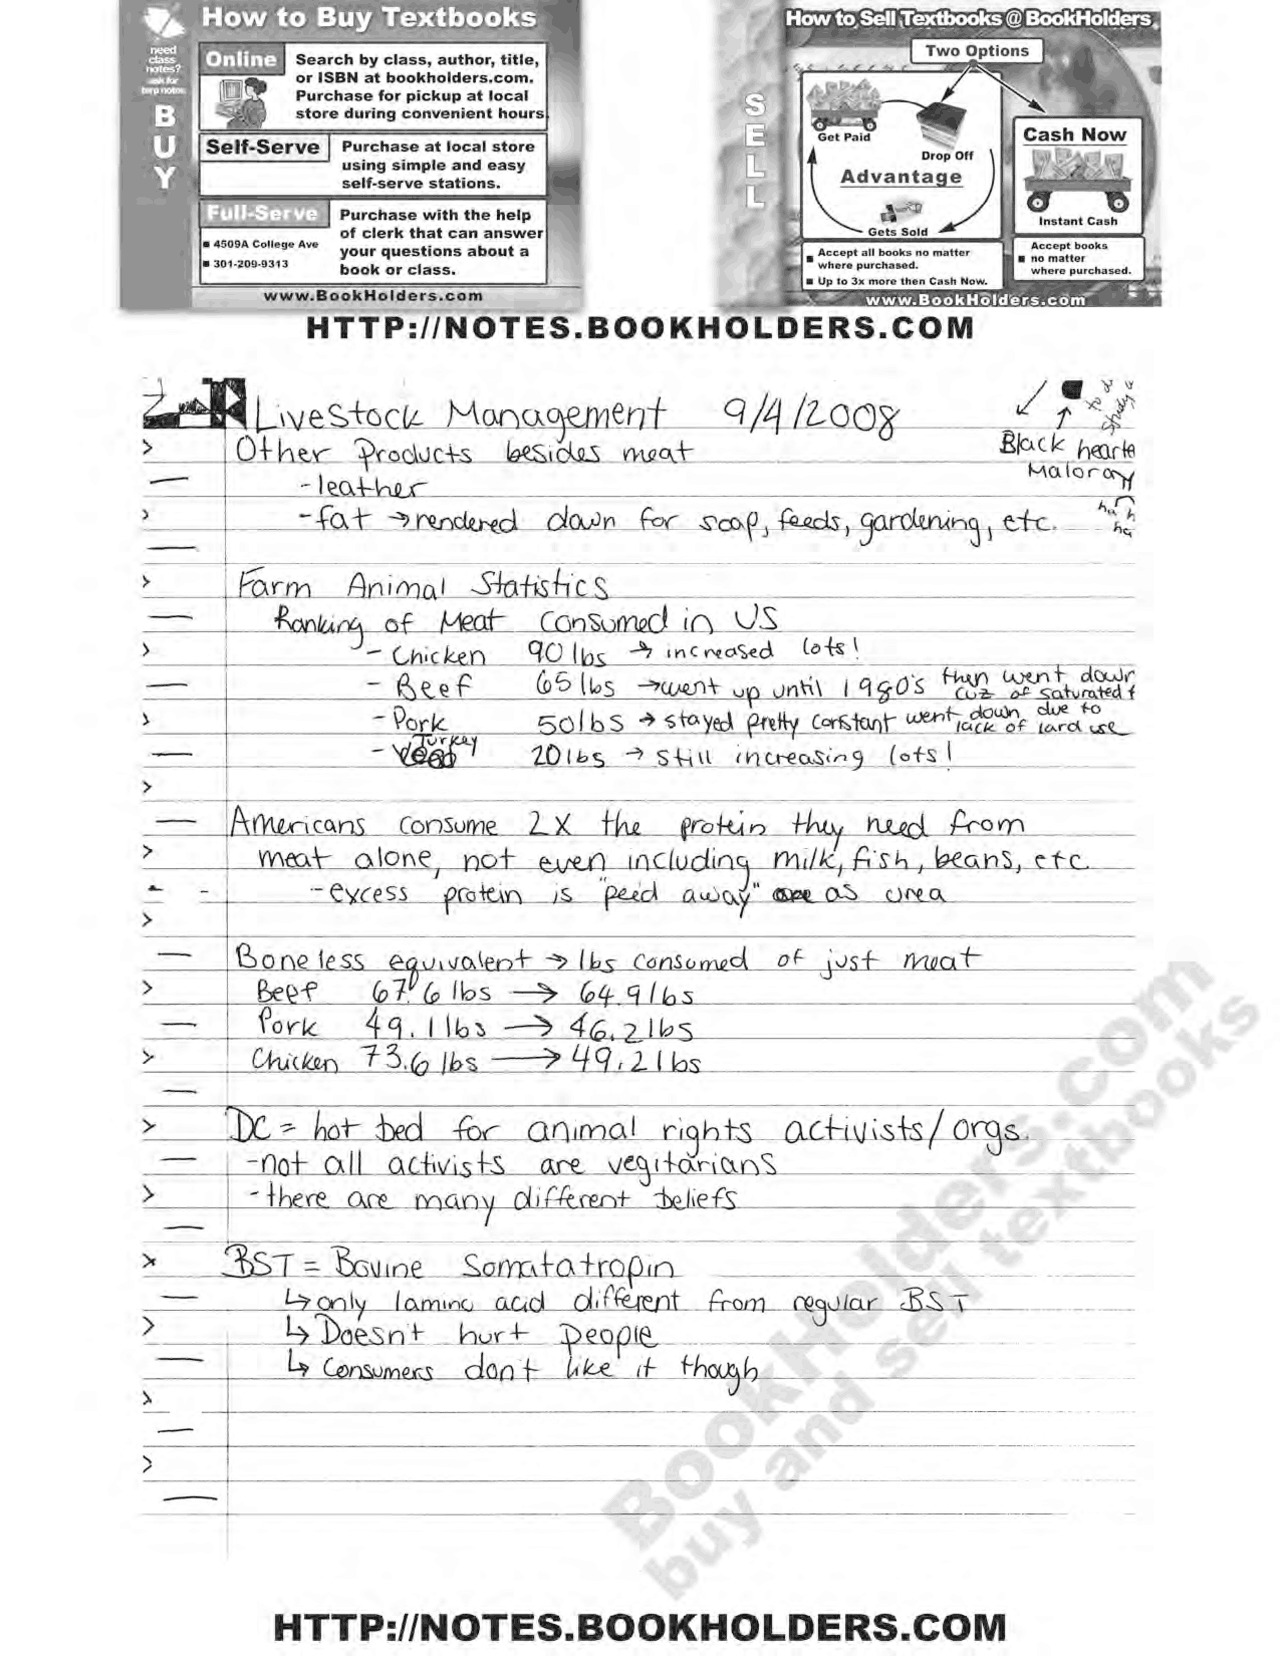 How to Buy Textbooks
need
class
notes?
ask for
terp notes
BUY
Online
Search by class, author, title,
or ISBN at bookholders.com.
Purchase for pickup at local
store during convenient hours
Self-Serve
Purchase at local store
using simple and easy
self-serve stations.
Full-Serve
■ 4509A College Ave
■ 301-209-9313
Purchase with the help
of clerk that can answer
your questions about a
book or class.
www.BookHolders.com
How to Sell Textbooks @ BookHolders
SELL
Two Options
Get Paid
Drop Off
Advantage
Gets Sold
■ Accept all books no matter
where purchased.
■ Up to 3x more then Cash Now.
Cash Now
Instant Cash
Accept books
■ no matter
where purchased.
www.BookHolders.com
HTTP://NOTES.BOOKHOLDERS.COM
Livestock Management 9/4/2008
to
study
Black hearte
Other Products besides meat
- leather
- fat → rendered down for soap, feeds, gardening, etc.
ha
ha
Farm Animal Statistics
Ranking of Meat Consumed in US
- Chicken 90 lbs → increased lots!
- Beef 65 lbs → went up until 1980's then went down
cuz of saturated f
- Pork 50 lbs → stayed pretty constant went down due to
lack of lard use
- Turkey 20 lbs → still increasing lots!
Americans consume 2X the protein they need from
meat alone, not even including milk, fish, beans, etc.
- excess protein is "peed away" as urea
Boneless equivalent → lbs consumed of just meat
Beef 67.6 lbs → 64.9 lbs
Pork 49.1 lbs → 46.2 lbs
Chicken 73.6 lbs → 49.2 lbs
DC = hot bed for animal rights activists/orgs.
- not all activists are vegitarians
- there are many different beliefs
BST = Bovine Somatatropin
↳ only 1 amino acid different from regular BST
↳ Doesn't hurt people
↳ Consumers don't like it though
BookHolders.com
buy and sell textbooks
HTTP://NOTES.BOOKHOLDERS.COM